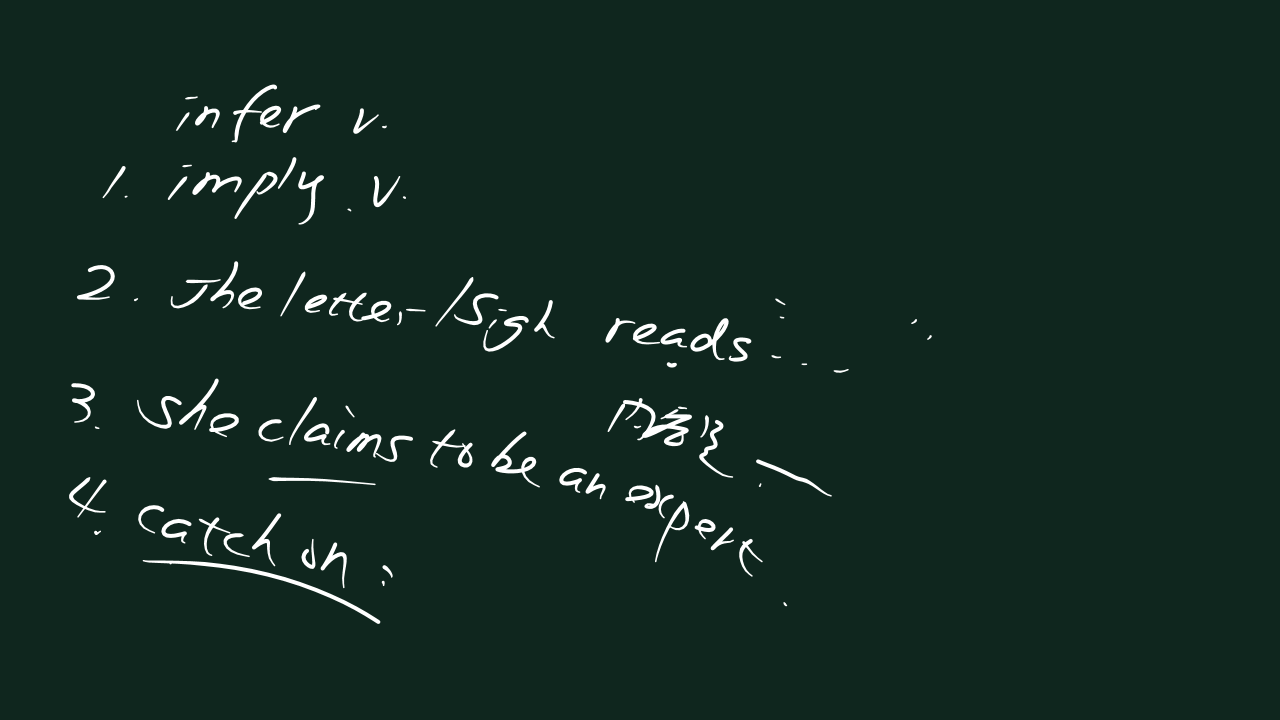 infer v.
1. imply. v.
2. The letter/Sign reads: ...
内容是
3. She claims to be an expert.
4. catch on: